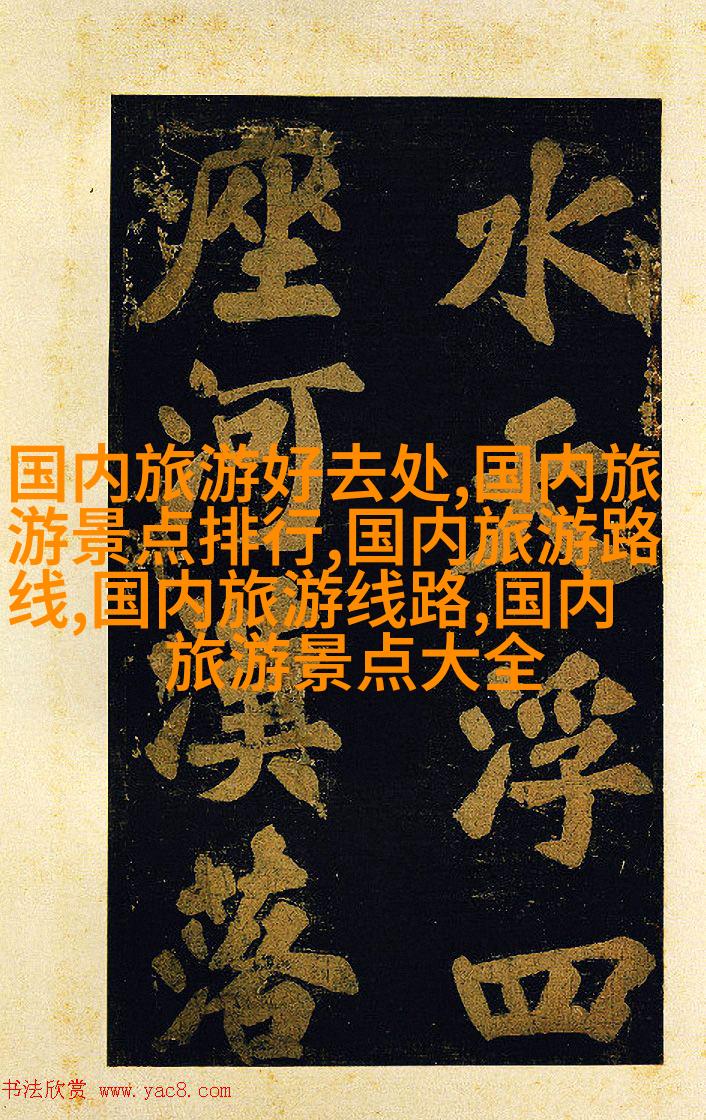 国内旅游好去处,国内旅
游景点排行,国内旅游路
线,国内旅游线路,国内
旅游景点大全
水天浮四
座河漢落
书法欣赏 www.yac8.com